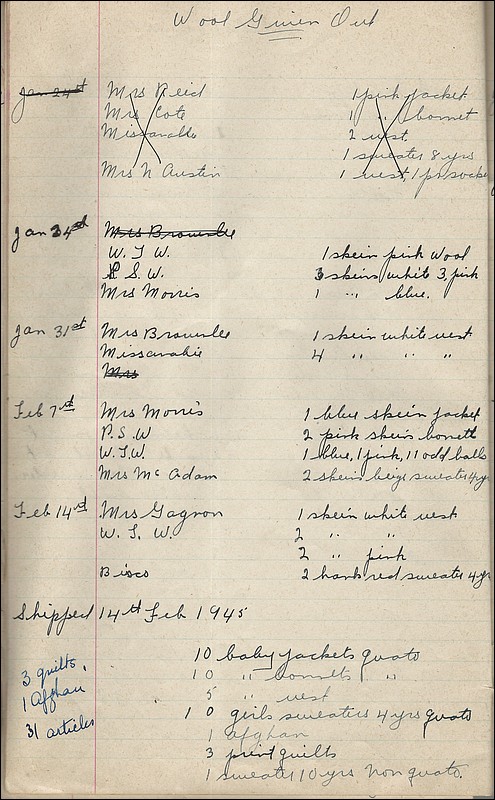 Wool Given Out
Jan 24st Mrs Reid 1 pink jacket
Mrs Cote 1 " bonnet
Missarabie 2 vest
1 sweater 8 yrs
Mrs N Austin 1 vest, 1 pr socks
Jan 24st Mrs Brownlee
W. T. W. 1 skein pink wool
P. S. W. 3 skeins white 3, pink
Mrs Morris 1 " blue.
Jan 31st Mrs Brownlee 1 skein white vest
Missarabie 4 " " "
Mrs
Feb 7st Mrs Morris 1 blue skein jacket
P. S. W 2 pink skeins bonnett
W. T. W. 1 blue, 1 pink, 11 odd balls
Mrs McAdam 2 skeins beige sweater 4 yr
Feb 14st Mrs Gagnon 1 skein white vest
W. T. W. 2 " "
2 " pink
Bisco 2 hank red sweater 4 yr
Shipped 14th Feb 1945
10 baby jackets quoto
3 quilts, 10 " bonnets "
1 Afghan 5 " vest
31 articles 10 girls sweaters 4 yrs quoto
1 afghan
3 print quilts
1 sweater 10 yrs non quoto.